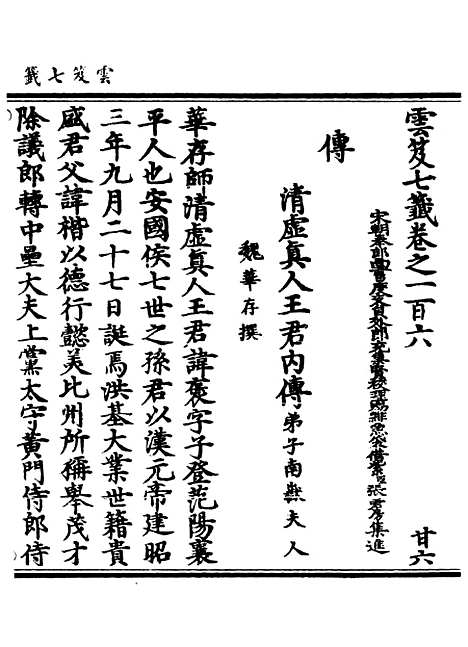 雲笈七籤
雲笈七籤卷之一百六 廿六
宋朝奉郎尚書度支員外郎充集賢校理賜緋魚袋借紫臣張君房集進
傳
清虛真人王君內傳 弟子南嶽夫人
魏華存撰
華存師清虛真人王君諱褒字子登范陽襄
平人也安國侯七世之孫君以漢元帝建昭
三年九月二十七日誕焉洪基大業世籍貴
盛君父諱楷以德行懿美比州所稱舉茂才
除議郎轉中壘大夫上黨太守黃門侍郎侍